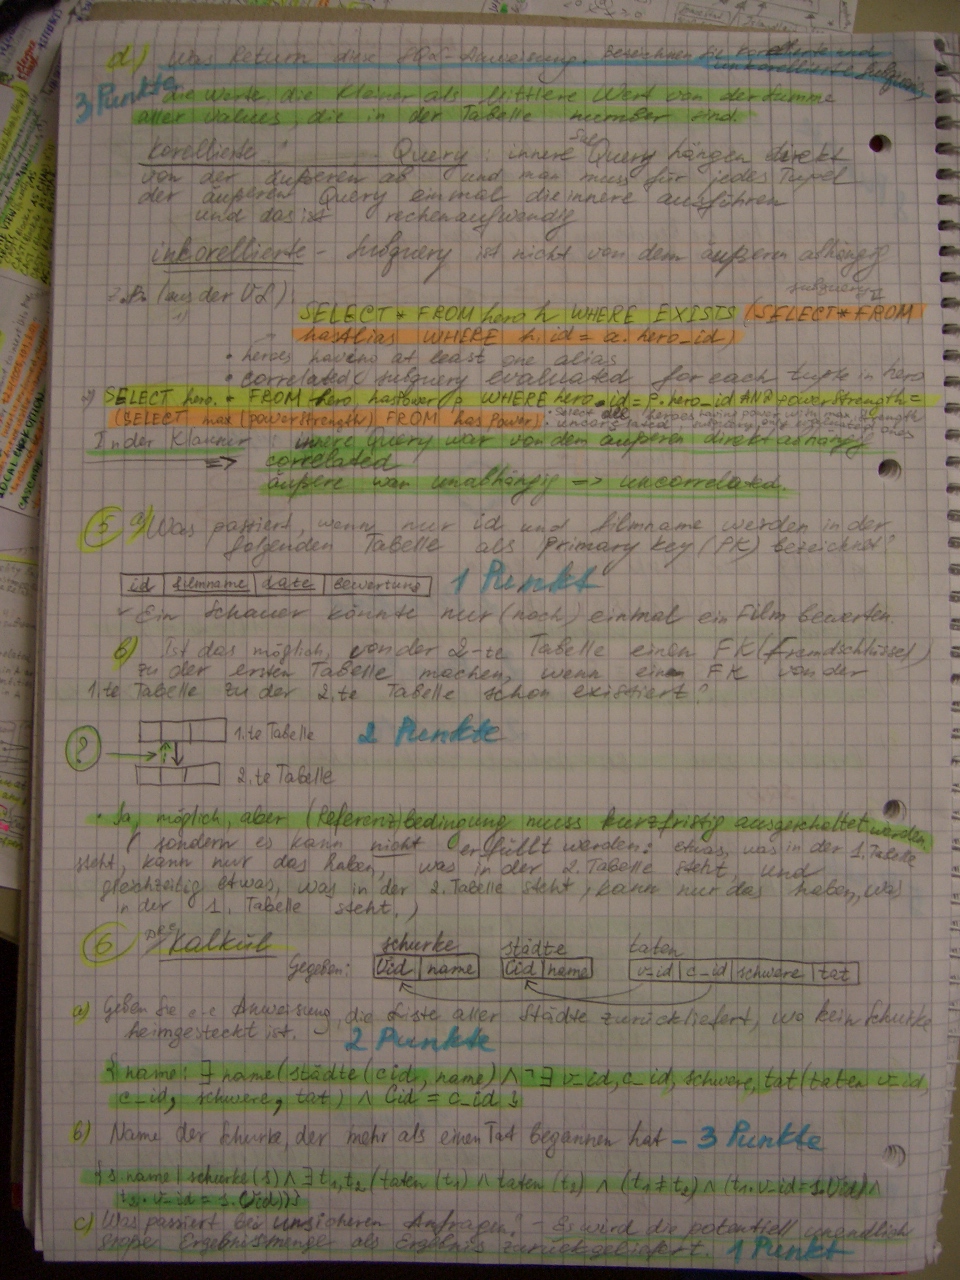 d) Was Return diese SQL-Anweisung. Bezeichnen Sie korellierte und
unkorellierte Subqueries
3 Punkte
die Werte, die kleiner als mittlere Wert von der Summe
aller Values, die in der Tabelle number sind.
Korellierte Query: innere Query hängen direkt
Sub
von der äußeren ab und man muss für jedes Tupel
der äußeren Query einmal die innere ausführen
und das ist rechenaufwendig
inkorellierte - Subquery ist nicht von dem äußern abhängig
z.B. (aus der VL)
subquery
1)
SELECT * FROM hero h WHERE EXISTS (SELECT * FROM
hasAlias WHERE h.id = a.hero_id)
• heroes having at least one alias
• correlated subquery evaluated for each tuple in hero
SELECT hero.* FROM hero, hasPower p WHERE hero.id = p.hero_id AND powerStrength =
(SELECT max(powerStrength) FROM hasPower)
• Select all heroes having power with max strength
• uncorrelated - subquery only evaluated once
In der Klausur: innere Query war von dem äußeren direkt abhängig
=> correlated
äußere war unabhängig => uncorrelated.
5 a) Was passiert, wenn nur id und filmname werden in der
folgenden Tabelle als primary key (PK) bezeichnet?
id | filmname | date | bewertung
1 Punkt
Ein Schauer könnte nur (noch) einmal ein Film bewerten.
b) Ist das möglich, von der 2-te Tabelle einen FK (Fremdschlüssel)
zu der ersten Tabelle machen, wenn ein FK von der
1.te Tabelle zu der 2.te Tabelle schon existiert?
1.te Tabelle
2 Punkte
?
2.te Tabelle
• Ja, möglich, aber (Referenz)bedingung muss kurzfristig ausgeschaltet werden.
( sondern es kann nicht erfüllt werden: etwas, was in der 1. Tabelle
steht, kann nur das haben, was in der 2. Tabelle steht, und
gleichzeitig etwas, was in der 2. Tabelle steht, kann nur das haben, was
in der 1. Tabelle steht.)
6 Kalkül
schurke städte taten
Gegeben: Vid | name Cid | name v_id | c_id | schwere | tat
a) Geben Sie Anweisung, die Liste aller Städte zurückliefert, wo kein Schurke
heimgesteckt ist.
2 Punkte
{ name: ∃ name (städte (cid, name) ∧ ¬∃ v_id, c_id, schwere, tat (taten v_id,
c_id, schwere, tat) ∧ Cid = c_id }
b) Name der Schurke, der mehr als einen Tat begannen hat - 3 Punkte
{ s.name | schurke(s) ∧ ∃ t1, t2 (taten (t1) ∧ taten (t2) ∧ (t1 ≠ t2) ∧ (t1.v_id = s.Vid) ∧
v_id = s.Vid)) }
c) Was passiert bei unsicheren Anfragen? - Es wird die potentiell unendlich
große Ergebnismenge als Ergebnis zurückgeliefert. 1 Punkt